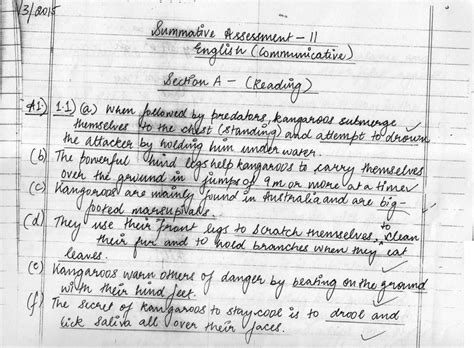 3/2015
Summative Assessment - II
English (Communicative)
Section A - (Reading)
A1) 1.1) (a) When followed by predators, kangaroos submerge
themselves to the chest (standing) and attempt to drown
the attacker by holding him under water.
(b) The powerful hind legs help kangaroos to carry themselves
over the ground in jumps of 9 m or more at a time
(c) Kangoroos are mainly found in Australia and are big-
footed marsupials.
(d) They use their front legs to scratch themselves, to clean
their fur and to hold branches when they eat
leaves.
(e) Kangaroos warn others of danger by beating on the ground
with their hind feet.
(f) The secret of kangaroos to stay cool is to drool and
lick saliva all over their faces.